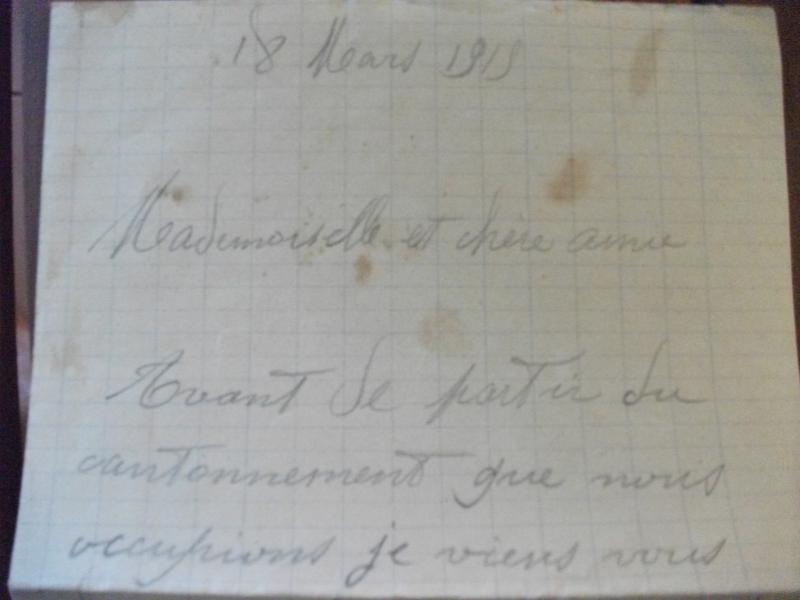 18 Mars 1915
Mademoiselle et chère amie
Avant de partir du
cantonnement que nous
occupions je viens vous